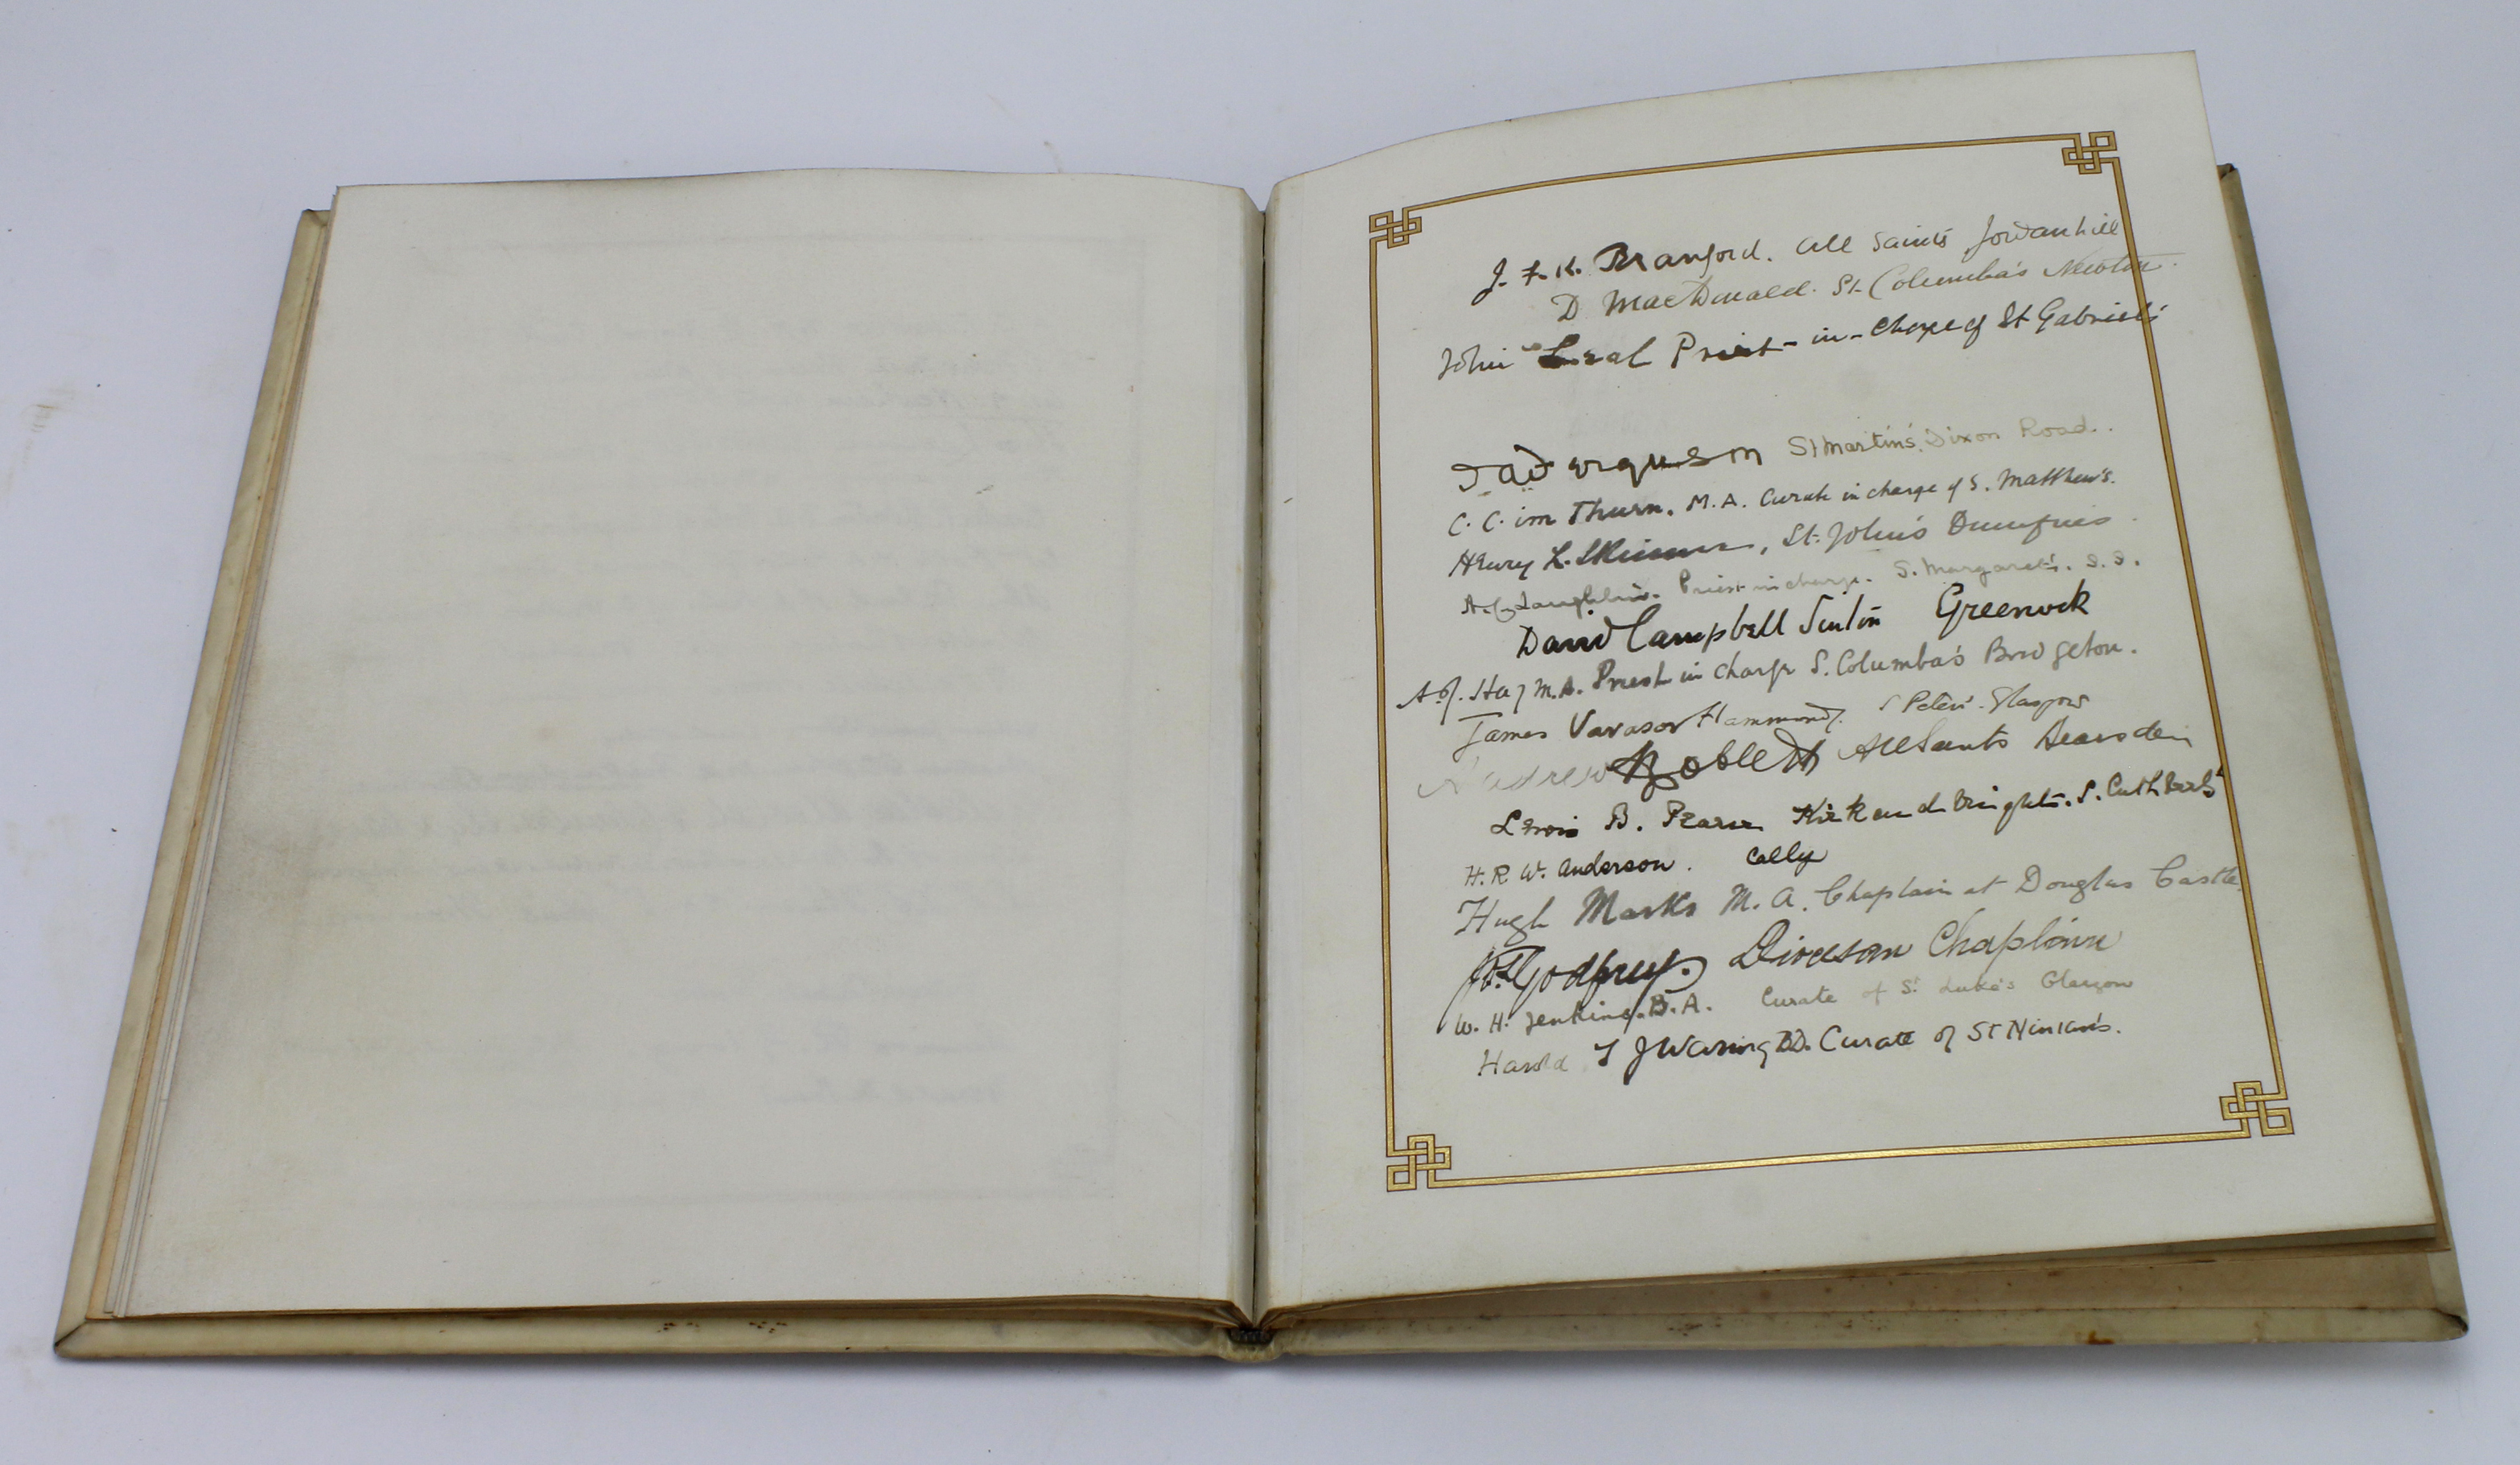 J. F. K. Branford. All Saints Jordanhill
D MacDonald. St. Columba's Newton.
John Leal Priest-in-Charge of St Gabriel's
Ferguson St Martin's. Dixon Road.
C. C. im Thurn. M.A. Curate in charge of S. Matthew's.
Henry L. Skinner, St. John's Dumfries.
Laughlin. Priest in charge. S. Margaret's.
David Campbell Sinton Greenock
Hay M.A. Priest in charge S. Columba's Bridgeton.
James Vavasor Hammond, S Peter's. Glasgow
Andrew Noblett All Saints Bearsden
Lewis B. Pearce Kirkcudbright. S. Cuthbert's
H. R. W. Anderson. Cally
Hugh Marks M. A. Chaplain at Douglas Castle.
Godfrey. Diocesan Chaplain
W. H. Jenkins. B.A. Curate of St Luke's Glasgow
Harold T J Waring B.D. Curate of St Ninian's.